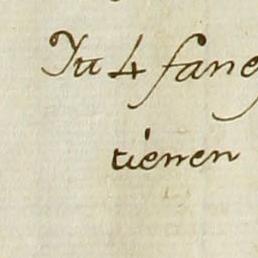 Tu 4 fane
tienen